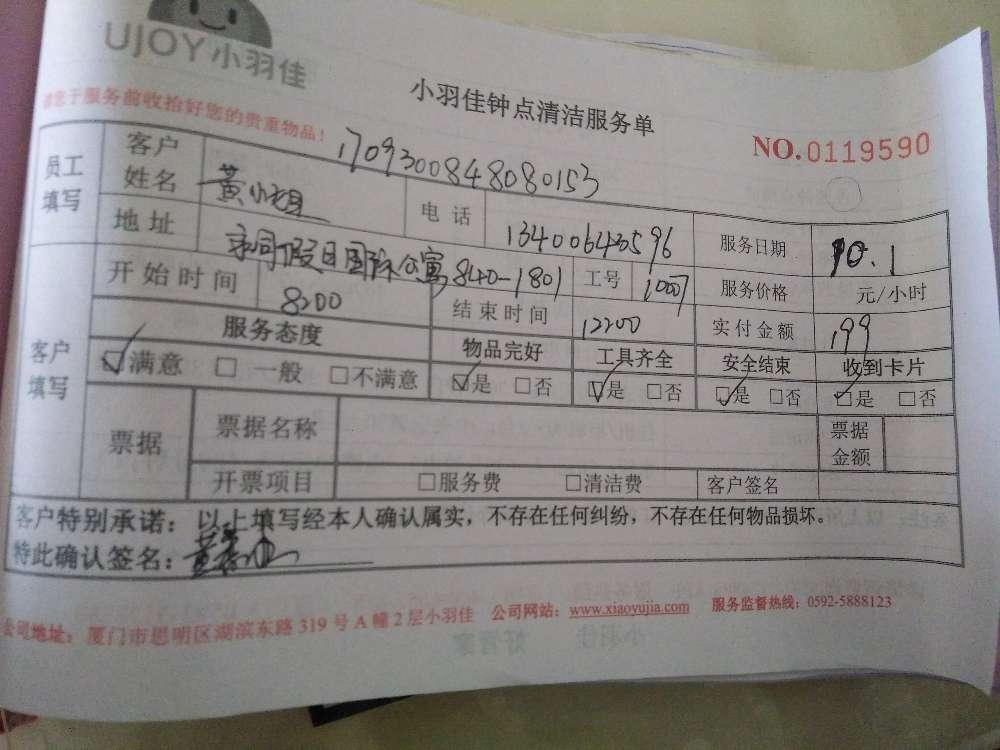 UJOY小羽佳
小羽佳钟点清洁服务单
请您于服务前收拾好您的贵重物品！
NO.0119590
1709300848080153
员工填写 客户姓名 黄小姐 电话 13400643596 服务日期 10.1
地址 假日国际公寓840-1801 工号 1007 服务价格 元/小时
开始时间 8:00 结束时间 12:00 实付金额 199
客户填写 服务态度 物品完好 工具齐全 安全结束 收到卡片
☑满意 □一般 □不满意 ☑是 □否 ☑是 □否 ☑是 □否 ☑是 □否
票据 票据名称 票据金额
开票项目 □服务费 □清洁费 客户签名
客户特别承诺：以上填写经本人确认属实，不存在任何纠纷，不存在任何物品损坏。
特此确认签名：
公司地址：厦门市思明区湖滨东路319号A幢2层小羽佳 公司网站：www.xiaoyujia.com 服务监督热线：0592-5888123